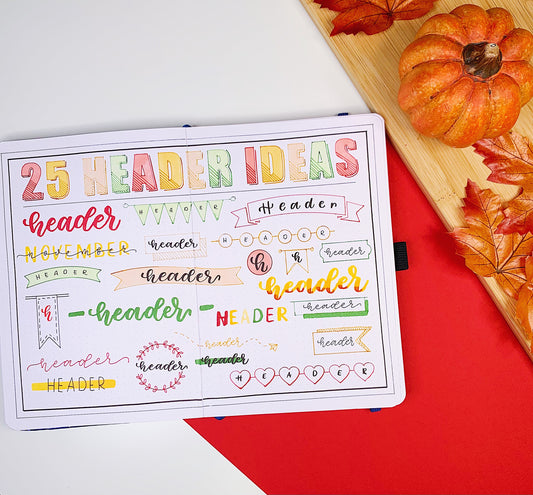 25 HEADER IDEAS
header HEADER Header
NOVEMBER november header HEADER
HEADER header h h header
h header HEADER header header
header header header
header header header HEADER
HEADER